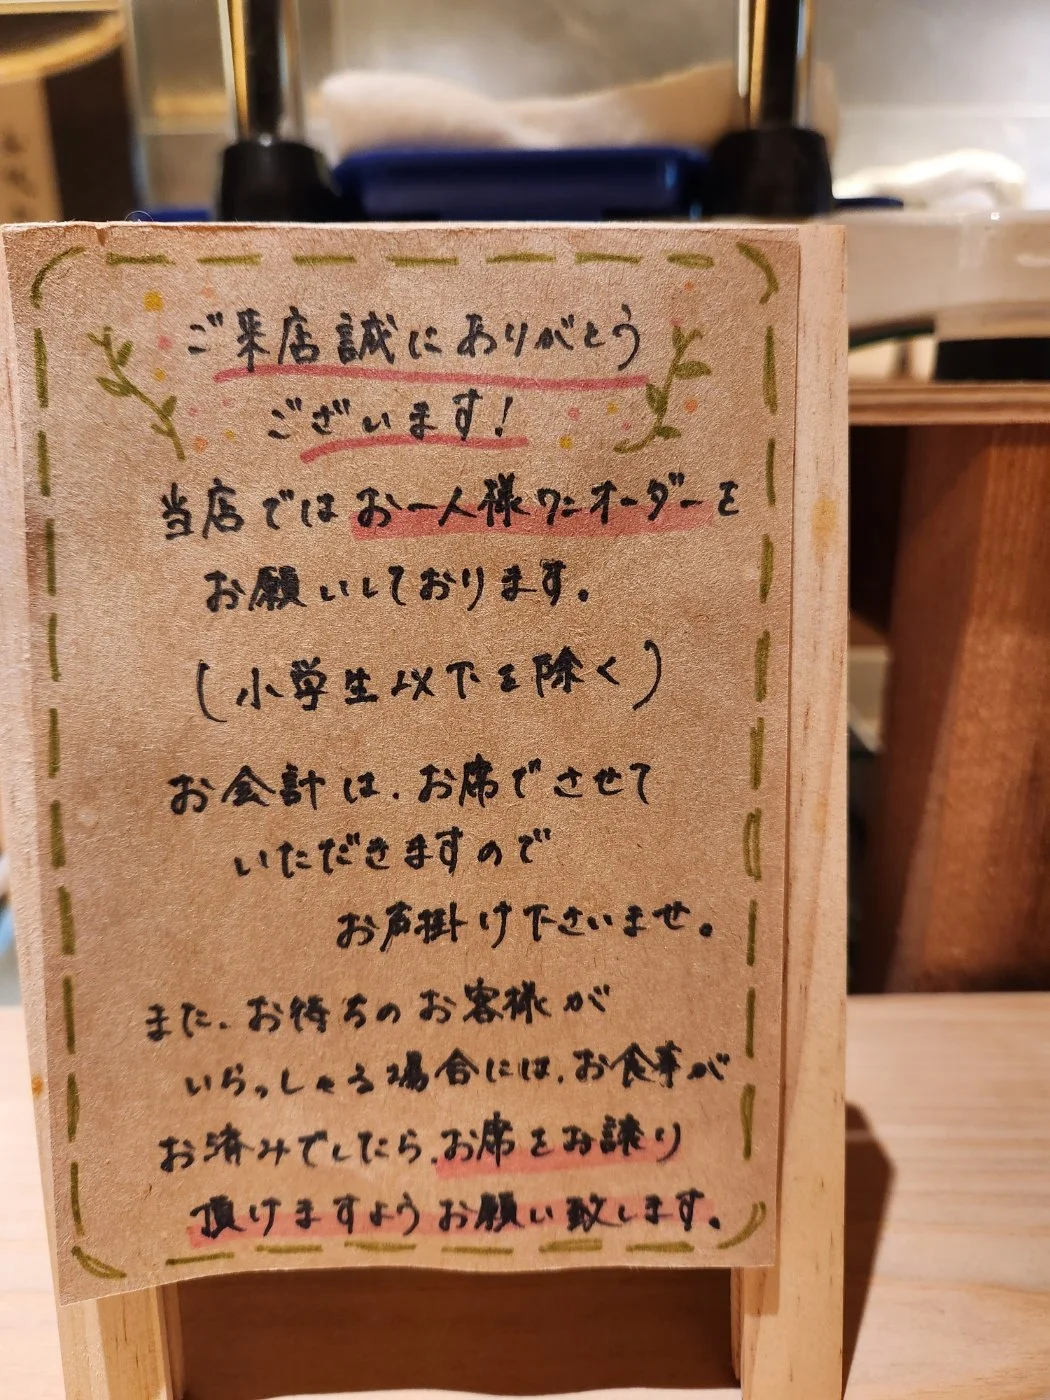 ご来店誠にありがとう
ございます！
当店ではお一人様ワンオーダーを
お願いしております。
(小学生以下を除く)
お会計は、お席でさせて
いただきますので
お声掛け下さいませ。
また、お待ちのお客様が
いらっしゃる場合には、お食事が
お済みでしたら、お席をお譲り
頂けますようお願い致します。